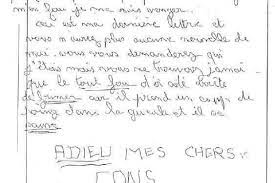 mon fou je me suis vanger.
ceci est ma dernière lettre et
vous n'aurez plus aucune nouvelle de
moi vous vous demanderez qui
j'étais mais vous ne trouverez jamai
que le tout fou d'à côté
de car il prend un coup de
poing dans la gueule et il se

ADIEU MES CHERS
CONS